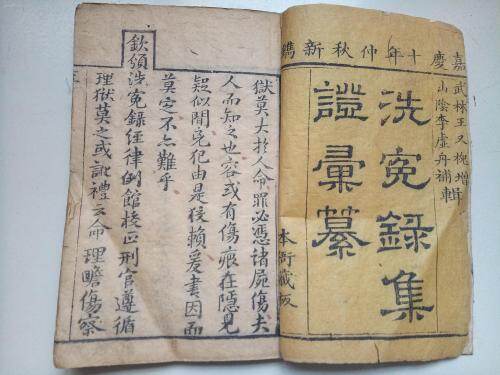 嘉慶十年仲秋新鐫
武林王又槐增
山陰李虛舟補
輯
洗冤錄集
證彙纂
本衙藏板
獄莫大於人命罪必憑諸屍傷夫
人而知之也容或有傷痕在隱見
疑似間兇犯由是狡賴爰書因而
莫定不亦難乎
欽頒洗冤錄經律例館校正刑官遵循
理獄莫之或訛禮云命理瞻傷察